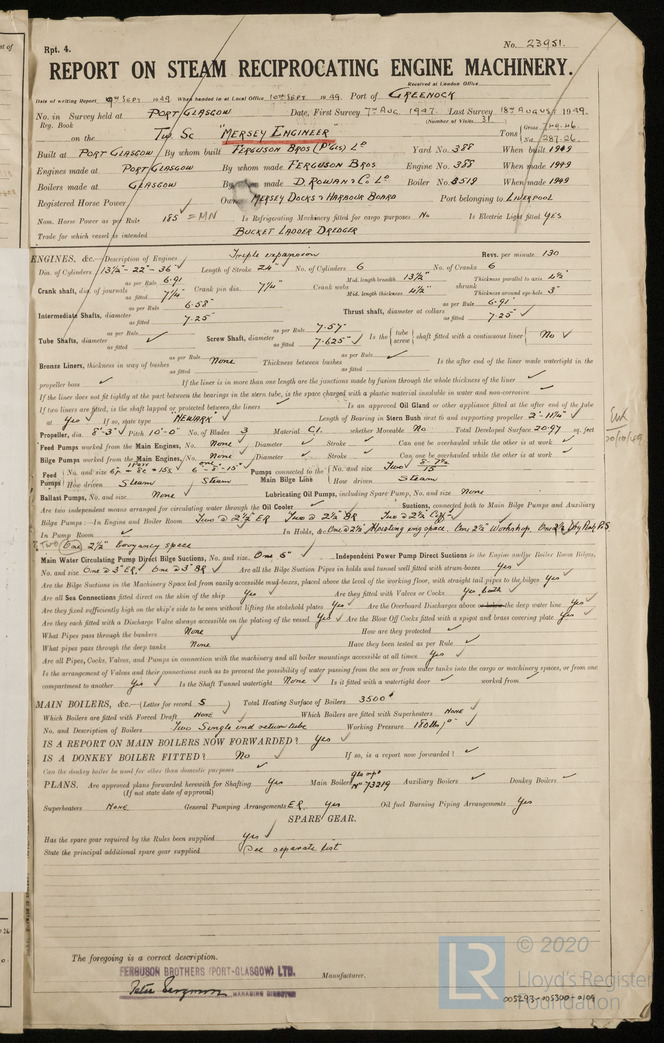 Rpt. 4.
No. 23951.
REPORT ON STEAM RECIPROCATING ENGINE MACHINERY.
Received at London Office
Date of writing Report 9th SEPT 1949 When handed in at Local Office 10th SEPT 1949. Port of GREENOCK
No. in Survey held at PORT GLASGOW Date, First Survey 7th AUG. 1947. Last Survey 18th AUGUST 1949.
Reg. Book (Number of Visits 31)
on the Tw. Sc "MERSEY ENGINEER Tons Gross
Net 287.26
Built at PORT GLASGOW By whom built FERGUSON BROS (P'GLS) Lᴰ Yard No. 388 When built 1949
Engines made at PORT GLASGOW By whom made FERGUSON BROS Engine No. 388 When made 1949
Boilers made at GLASGOW By whom made D. ROWAN & Co. Lᴰ Boiler No. 3519 When made 1949
Registered Horse Power Owners MERSEY DOCKS & HARBOUR BOARD Port belonging to LIVERPOOL
Nom. Horse Power as per Rule 185 = MN Is Refrigerating Machinery fitted for cargo purposes No Is Electric Light fitted YES
Trade for which vessel is intended BUCKET LADDER DREDGER
ENGINES, &c.—Description of Engines Triple expansion Revs. per minute 130
Dia. of Cylinders 13½"- 22"- 36" Length of Stroke 24" No. of Cylinders 6 No. of Cranks 6
Crank shaft, dia. of journals as per Rule 6.91 as fitted 7¼" Crank pin dia. 7¼" Crank webs Mid. length breadth 13½" Mid. length thickness 4½" shrunk Thickness parallel to axis 4½" Thickness around eye-hole 3"
Intermediate Shafts, diameter as per Rule 6.58" as fitted 7.25" Thrust shaft, diameter at collars as per Rule 6.91" as fitted 7.25"
Tube Shafts, diameter as per Rule as fitted Screw Shaft, diameter as per Rule 7.57" as fitted 7.625" Is the tube screw shaft fitted with a continuous liner No
Bronze Liners, thickness in way of bushes as per Rule as fitted None Thickness between bushes as per Rule as fitted Is the after end of the liner made watertight in the
propeller boss If the liner is in more than one length are the junctions made by fusion through the whole thickness of the liner
If the liner does not fit tightly at the part between the bearings in the stern tube, is the space charged with a plastic material insoluble in water and non-corrosive
If two liners are fitted, is the shaft lapped or protected between the liners Is an approved Oil Gland or other appliance fitted at the after end of the tube
shaft Yes If so, state type NEWARK Length of Bearing in Stern Bush next to and supporting propeller 2'-11¼"
Propeller, dia. 8'-3" Pitch 10'-0" No. of Blades 3 Material C.I. whether Moveable No Total Developed Surface 20.97 sq. feet
Feed Pumps worked from the Main Engines, No. None Diameter Stroke Can one be overhauled while the other is at work
Bilge Pumps worked from the Main Engines, No. None Diameter Stroke Can one be overhauled while the other is at work
Feed Pumps No. and size How driven Steam Steam Pumps connected to the Main Bilge Line No. and size Two How driven Steam
Ballast Pumps, No. and size None Lubricating Oil Pumps, including Spare Pump, No. and size None
Are two independent means arranged for circulating water through the Oil Cooler Suctions, connected both to Main Bilge Pumps and Auxiliary
Bilge Pumps:—In Engine and Boiler Room Two @ 2½" ER Two @ 2½" BR Two @ 2½"
In Pump Room In Holds, &c. One @ 2½" Hoisting eng space. One 2½" Workshop.
One 2½" buoyancy space
Main Water Circulating Pump Direct Bilge Suctions, No. and size. One 5" Independent Power Pump Direct Suctions to the Engine and/or Boiler Room Bilges,
No. and size One @ 3" ER. One @ 3" BR Are all the Bilge Suction Pipes in holds and tunnel well fitted with strum-boxes Yes
Are the Bilge Suctions in the Machinery Space led from easily accessible mud-boxes, placed above the level of the working floor, with straight tail pipes to the bilges Yes
Are all Sea Connections fitted direct on the skin of the ship Yes Are they fitted with Valves or Cocks Yes both
Are they fixed sufficiently high on the ship's side to be seen without lifting the stokehold plates Yes Are the Overboard Discharges above or below the deep water line Yes
Are they each fitted with a Discharge Valve always accessible on the plating of the vessel Yes Are the Blow Off Cocks fitted with a spigot and brass covering plate Yes
What Pipes pass through the bunkers None How are they protected
What pipes pass through the deep tanks None Have they been tested as per Rule
Are all Pipes, Cocks, Valves, and Pumps in connection with the machinery and all boiler mountings accessible at all times Yes
Is the arrangement of Valves and their connections such as to prevent the possibility of water passing from the sea or from water tanks into the cargo or machinery spaces, or from one
compartment to another Yes Is the Shaft Tunnel watertight None Is it fitted with a watertight door worked from
MAIN BOILERS, &c.—(Letter for record S) Total Heating Surface of Boilers 3500
Which Boilers are fitted with Forced Draft None Which Boilers are fitted with Superheaters None
No. and Description of Boilers Two Single end return tube Working Pressure 180
IS A REPORT ON MAIN BOILERS NOW FORWARDED? Yes
IS A DONKEY BOILER FITTED? No If so, is a report now forwarded?
Can the donkey boiler be used for other than domestic purposes
PLANS. Are approved plans forwarded herewith for Shafting Yes Main Boilers Gls rpt No 73219 Auxiliary Boilers Donkey Boilers
(If not state date of approval)
Superheaters None General Pumping Arrangements E.R. Yes Oil fuel Burning Piping Arrangements Yes
SPARE GEAR.
Has the spare gear required by the Rules been supplied Yes
State the principal additional spare gear supplied See separate list
The foregoing is a correct description.
FERGUSON BROTHERS (PORT-GLASGOW) LTD.
Manufacturer.
Peter Ferguson MANAGING DIRECTOR
LR © 2020
Lloyd's Register
Foundation
005293-005300-0109
20/10/49